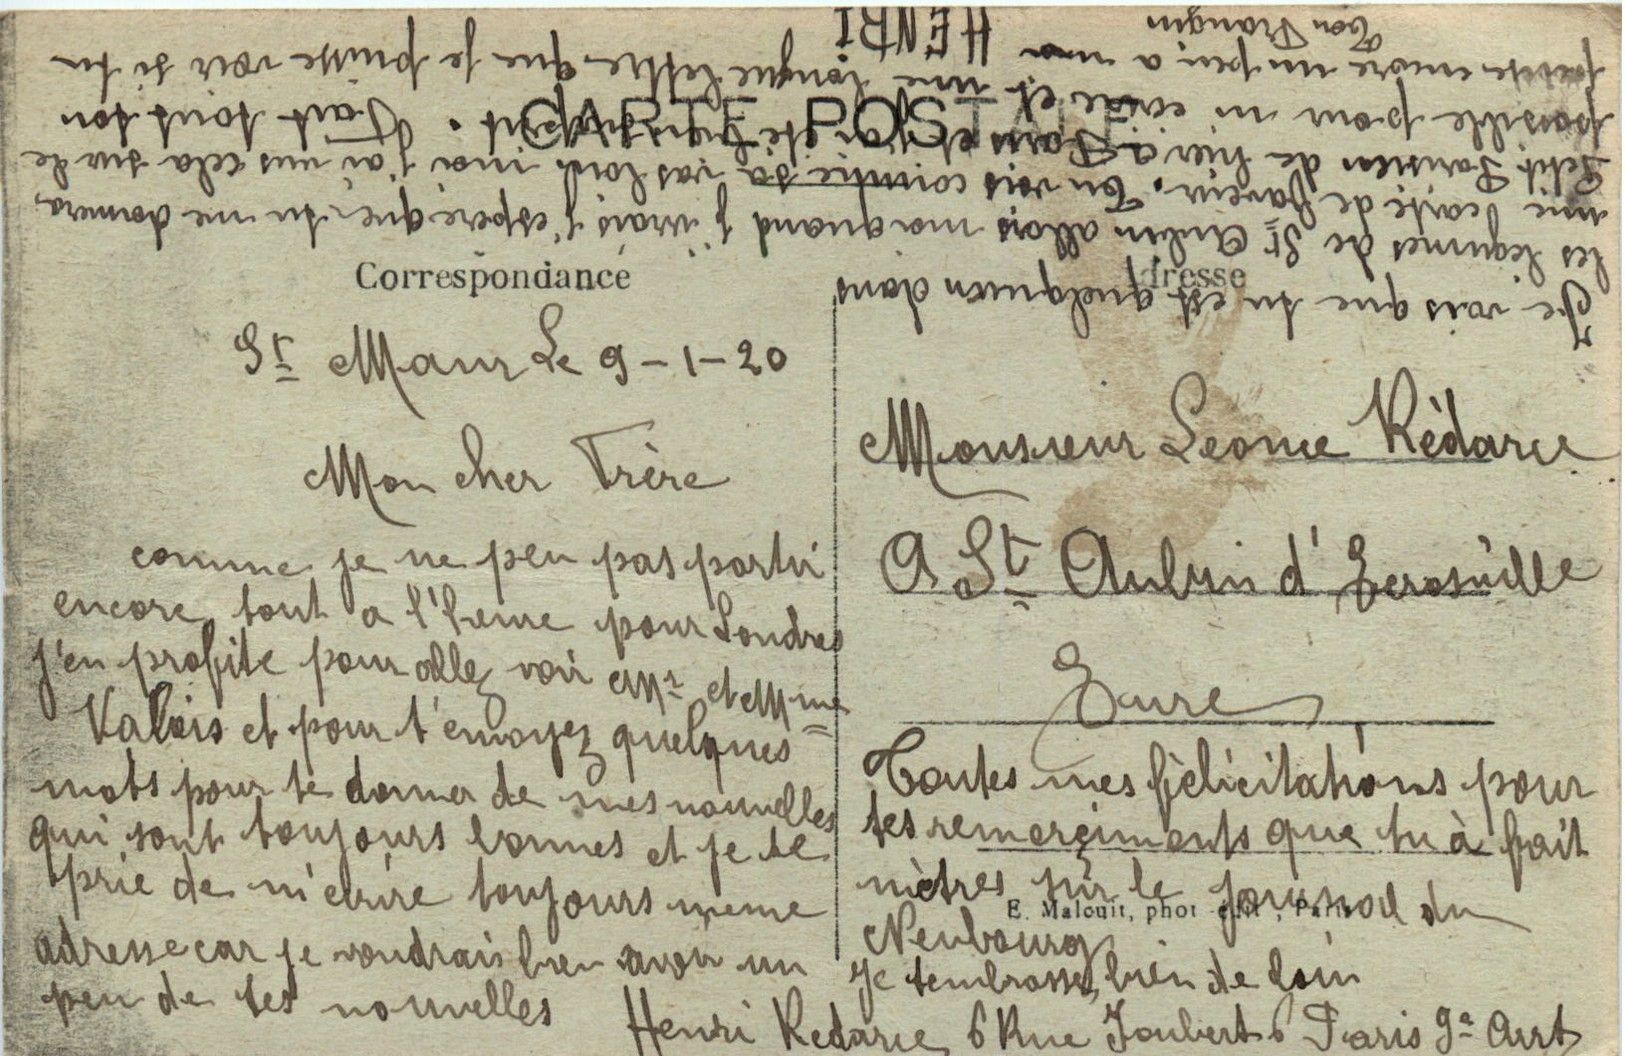 CARTE POSTALE
Correspondance
Adresse
St Maur Le 9-1-20
Mon cher Frère
comme je ne peu pas partir
encore tout a l'heure pour Londres
j'en profite pour allez voir Mr et Mme
Valois et pour t'envoyez quelques
mots pour te donner de mes nouvelles
qui sont toujours bonnes et je te
prie de m'ecrire toujours meme
adresse car je voudrais bien avoir un
peu de tes nouvelles
Monsieur Leonce Rédarce
A St Aubin d'Ecrosville
Eure
Toutes mes félicitations pour
tes remerçiments que tu à fait
mètres sur le journal du
Neubourg
Je t'embrasse bien de loin
Henri Redarce 6 Rue Joubert 6 Paris 9e Arrt
E. Malcuit, phot-édit, Paris
Je vois que tu est quelqu'un dans
les légumes de St Aubin allors moi quand j'irais j'espère que tu me donnera
une carte de faveur. Tu vois comme sa vas loin moi j'ai vus cela sur le
Petit Parisien de hier a Paris et
possible pour m'ecrire et une longue lettre que je puisse voir si tu
pense encore un peu a moi
Ton Frangin
HENRI